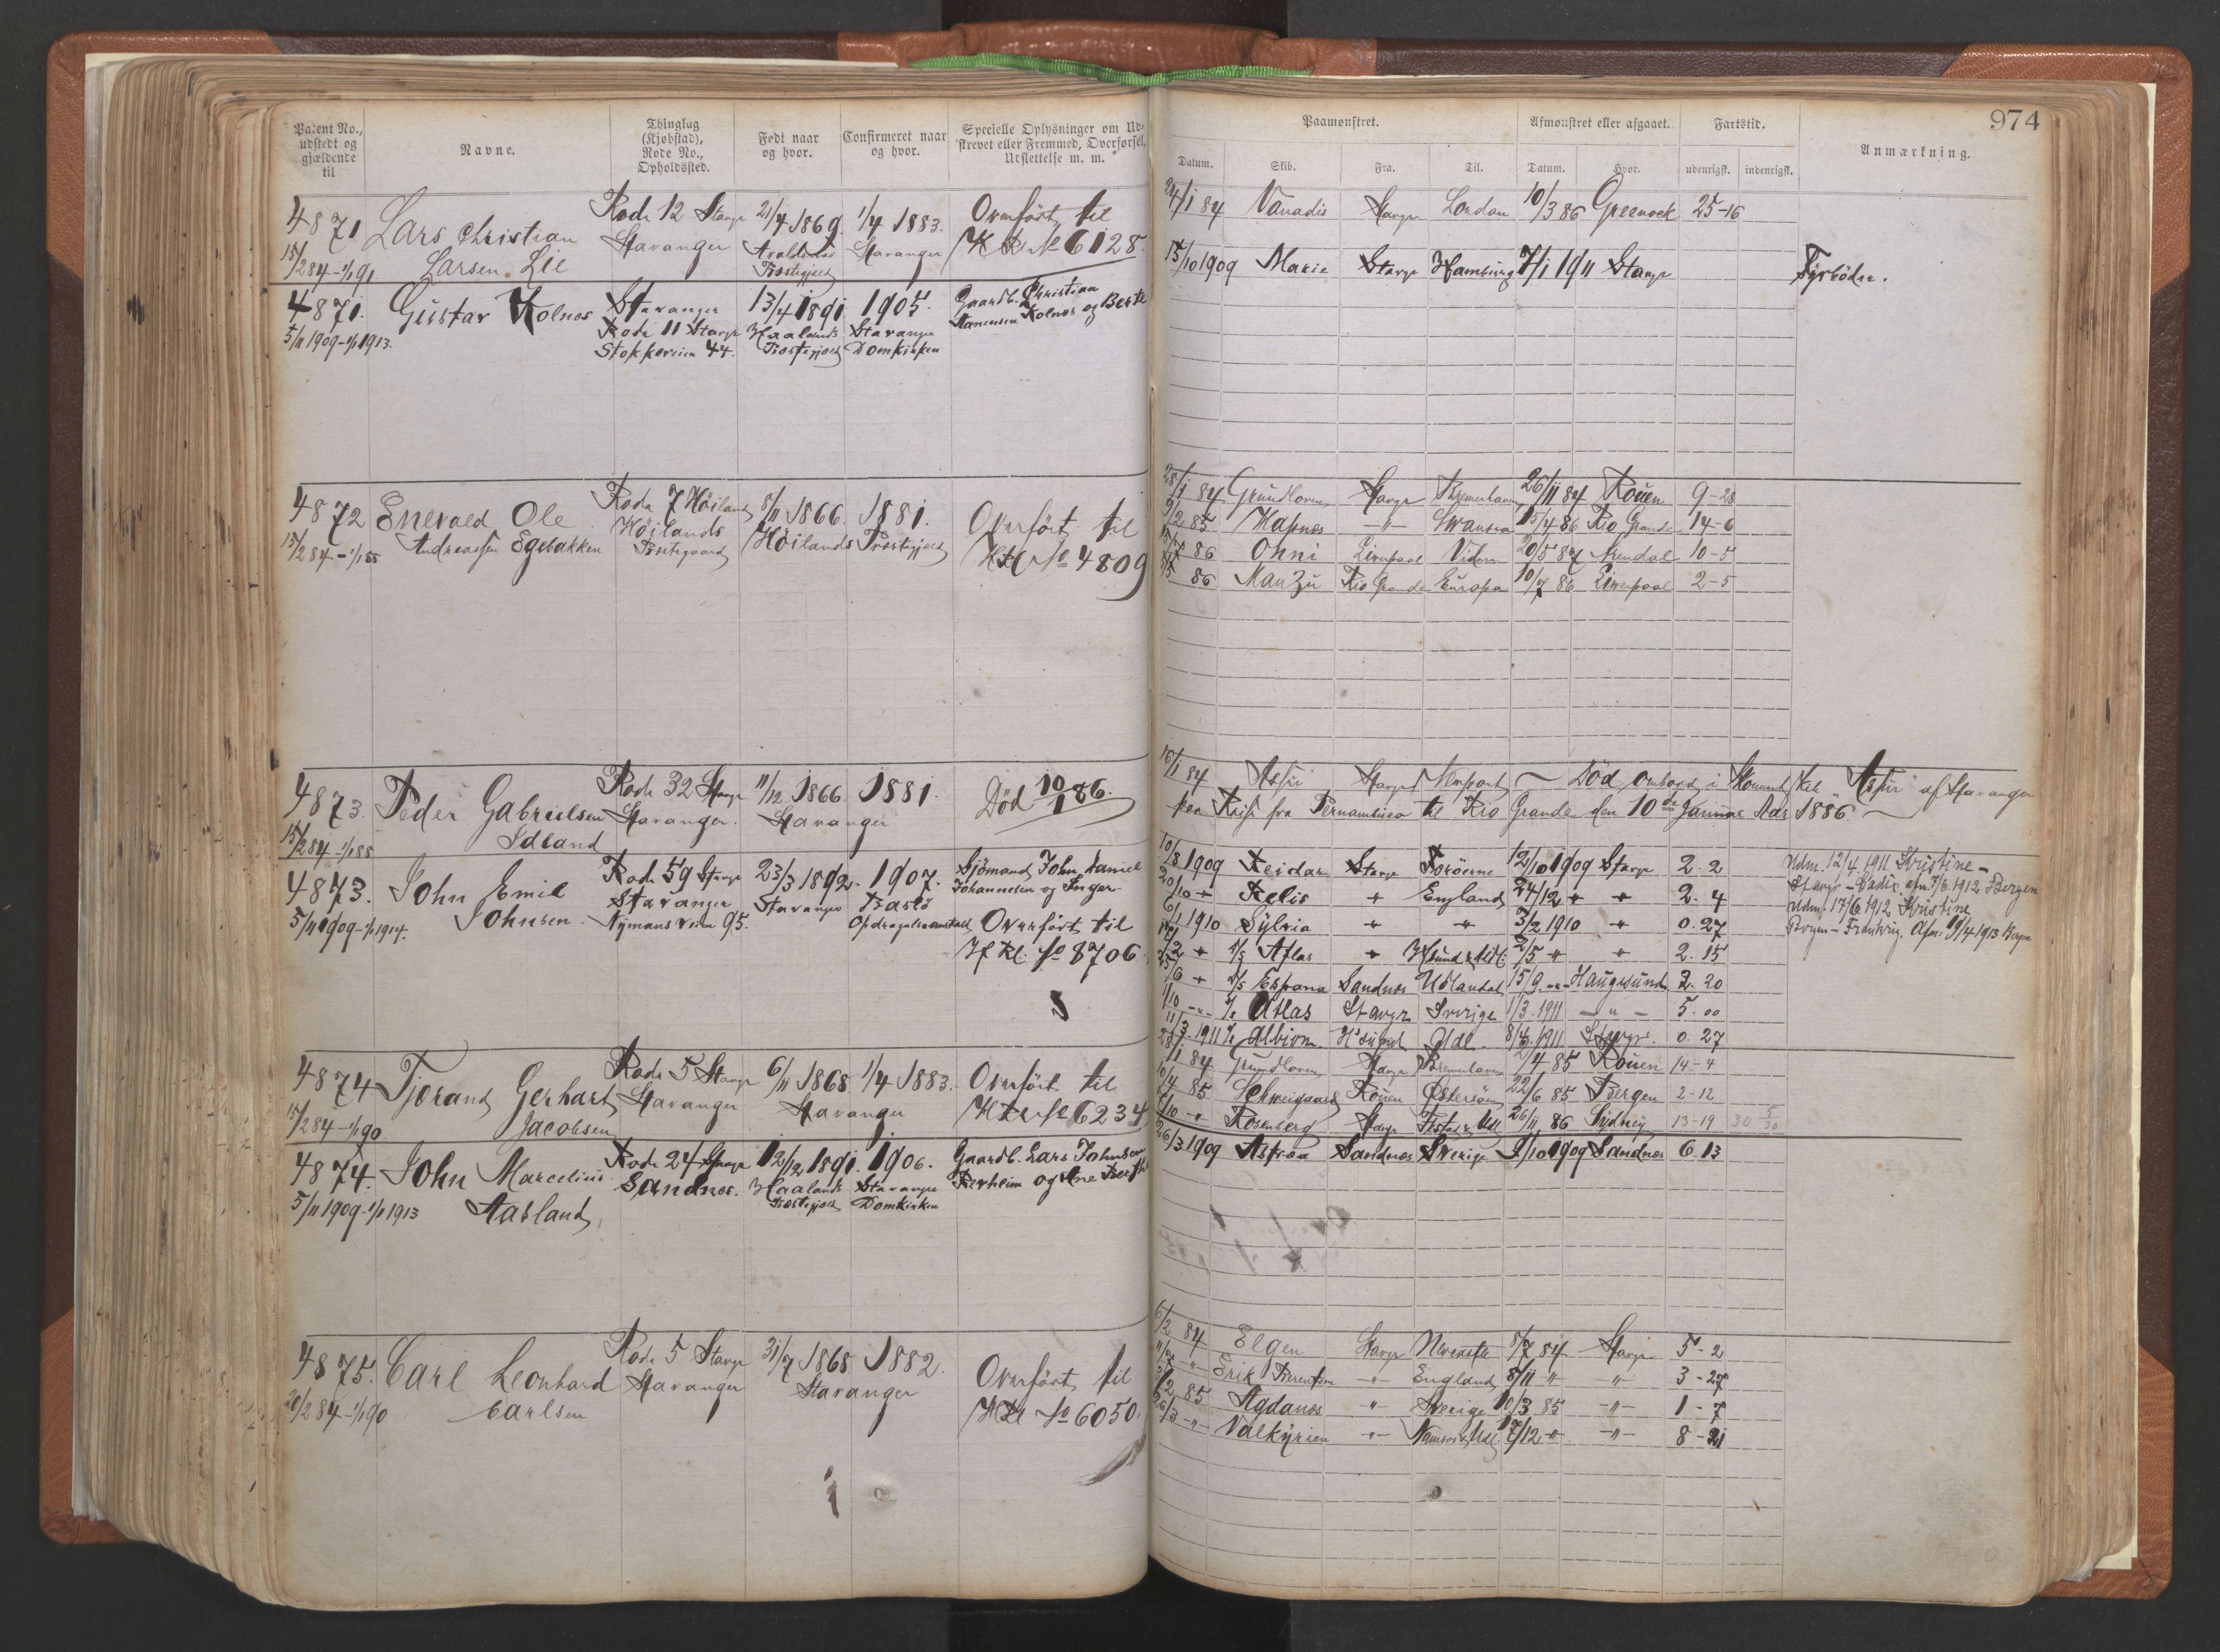 974
Patent No., udstedt og gjældende til
Navne.
Thinglug (Kjøbstad), Rode No., Opholdssted.
Født naar og hvor.
Confirmeret naar og hvor.
Specielle Oplysninger om Udskrevet eller Fremmed, Overførsel, Udslettelse m. m.
Paamønstret.
Afmønstret eller afgaaet.
Fartstid.
Anmærkning.
Datum. Skib. Fra. Til. Datum. Hvor. udenrigsk. indenrigsk.
4871 Lars Christian Rode 12 Stavgr 21/4 1869 1/4 1883. Overført til
15/2 84 - 1/1 91 Larsen Lie Stavanger Stavanger No 6128.
Præstegjæld
24/1 84 Vanadis Stavgr London 10/3 86 Greenock 25-16
4871. Gustav Kolnes Stavanger 13/4 1891. 1905. Gaardb. Christian
5/11 1909 - 1/1 1913. Rode 11 Stavgr Haalands Stavanger Kolnes og Berte
Stokkaveien 44. Præstegjæld Domkirken
15/10 1909 Marie Stavgr Hamburg 7/1 1911 Stavgr Fyrbøder.
4872 Enevald Ole Rode 7 Höiland 8/11 1866. 1881. Overført til
15/2 84 - 1/1 88 Andreassen Egebakken Höilands Höilands Præstegjæld No 4809
Præstegaard
28/1 84 Grundloven Stavgr Bremerhaven 26/11 84 Rouen 9-28
9/2 85 Hafnæs -"- Swansea 15/4 86 Rio Grande 14-6
86 Onni Liverpool 20/5 87 Arendal 10-5
86 Rio Grande Europa 10/7 86 Liverpool 2-5
4873. Peder Gabrielsen Rode 32 Stavgr 11/12 1866 1881. Død 10/1 86.
15/2 84 - 1/1 88 Idland Stavanger. Stavanger
16/1 84 Assur Stavgr Newport Död ombord i "Assur" af Stavanger
paa Reise fra Pernambuco til Rio Grande den 10de Januar 1886.
4873. John Emil Rode 59 Stavgr 23/3 1892. 1907. Sjömand John Daniel
5/11 1909 - 1/1 1914. Johnsen. Stavanger Stavanger Johannesen og Inger
Nymansveien 95. Opdragelsesanstalt Overført til
No 8706
10/8 1909 Reidar Stavgr Færöerne 12/10 1909 Stavgr 2. 2
20/10 " England 24/12 " " 2. 4
6/1 1910 Sylvia " " 3/2 1910 " 0. 27
" Atlas " 2/5 " " 2. 15
" Espana Sandnes Udlandet 15/9 -"- Haugesund 2. 20
1/10 -"- Atlas Stavgr Sverige 1/3 1911 -"- 5. 00
11/3 1911 Albion H'sund Udl. 8/4 1911 Stavgr. 0. 27
Udm. 12/4 1911 Kristine -
Stavgr - Cadix. afm. 7/6 1912 Bergen
Udm. 17/6 1912 Kristine
Bergen - 1913
4874 Tjorand Gerhart Rode 5 Stavgr 6/11 1868 1/4 1883. Overført til
15/2 84 - 1/1 90 Jacobsen Stavanger Stavanger No 6234
28/1 84 Grundloven Stavgr Bremerhaven 2/4 85 Rouen 14-4
85 Schweigaard Rouen Østersöen 22/6 85 Bergen 2-12
Rosenberg Stavgr 26/11 86 Sydney 13-19
4874. John Marcelius Rode 24 Stavgr 12/12 1891. 1906. Gaardb. Lars Johnsen
5/11 1909 - 1/1 1913 Aasland Sandnes. Haalands Stavanger og Ane
Præstegjæld Domkirken
26/3 1909 Astræa Sandnes Sverige 9/10 1909 Sandnes 6. 13
4875. Carl Leonhard Rode 5 Stavgr 31/7 1868 1882. Overført til
20/2 84 - 1/1 90 Carlsen Stavanger Stavanger No 6050.
6/2 84 Elgen Stavgr Newcastle 8/7 84 Stavgr 5-2
Erik -"- England 8/11 " " 3-27
85 Agdanes " Sverige 10/3 85 -"- 1-7
-"- Valkyrien -"- 7/12 " -"- 8-21